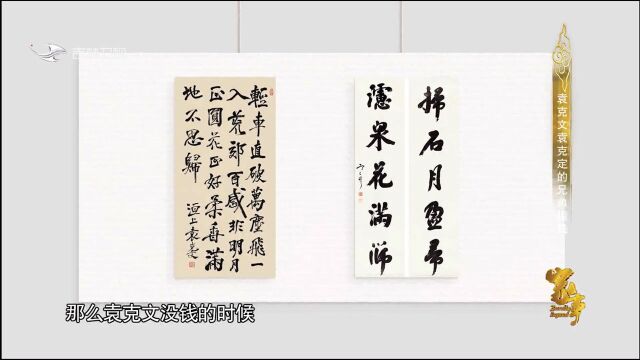 吉林卫视
袁克文袁克定的兄弟
掃石月盈帚
濾泉花滿篩
輕車直破萬塵飛一
入荒郊百感非明月
正圓花正好柔香滿
地不思歸
洹上袁克文
那么袁克文没钱的时候